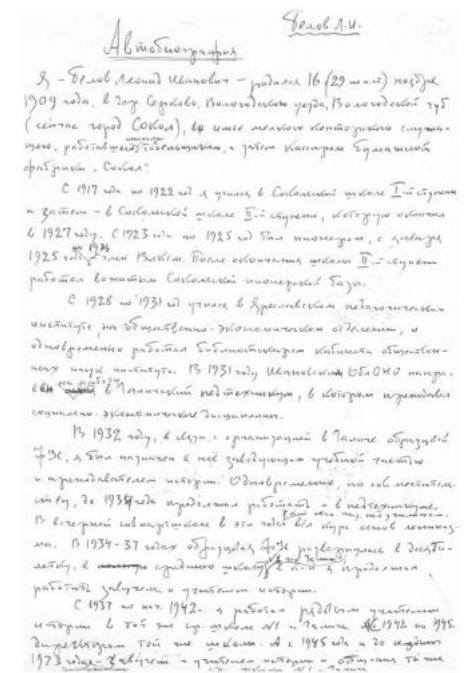 Белов Л.И.
Автобиография
Я – Белов Леонид Иванович – родился 16 (29 ноября
1909 года, в дер. Вологодского уезда, Вологодской губ
(сейчас город Сокол), в семье мелкого конторского служа-
щего, работавшего табельщиком, а затем кассиром бумажной
фабрики „Сокол“.
С 1917 года по 1922 год я учился в Сокольской школе I-й ступени
а затем – в Сокольской школе II-й ступени, которую окончил
в 1927 году. С 1923 года по 1925 год был пионером, с января
1925 года член ВЛКСМ. После окончания школы II-й ступени
работал вожатым Сокольской пионерской базы.
С 1928 по 1931 год учился в Ярославском педагогическом
институте, на общественно-экономическом отделении, и
одновременно работал библиотекарем кабинета обществен-
ных наук института. В 1931 году Ивановским ОблОНО направ-
лен на работу в Галичский педтехникум, в котором преподавал
социально-экономические дисциплины.
В 1932 году, в связи с организацией в Галиче образцовой
ФЗС, я был назначен в неё заведующим учебной частью
и преподавателем истории. Одновременно, по совместитель-
ству, до 1934 года продолжал работать и в педтехникуме.
В вечерней совпартшколе в эти годы вёл курс основ лениниз-
ма. В 1934-37 годах образцовая ФЗС развернулась в десяти-
летку, в среднюю школу и я продолжал
работать завучем и учителем истории.
С 1937 по 1942 г. я работал рядовым учителем
истории в той же ср. школе №1 г. Галича. С 1942 по 1945
директором той же школы. А с 1945 года и до
1973 года – завучем и учителем истории и той же